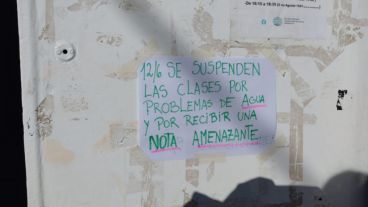 -De 10:15 a 18:35
12/6 SE SUSPENDEN
LAS CLASES POR
PROBLEMAS DE AGUA
Y POR RECIBIR UNA
NOTA AMENAZANTE.